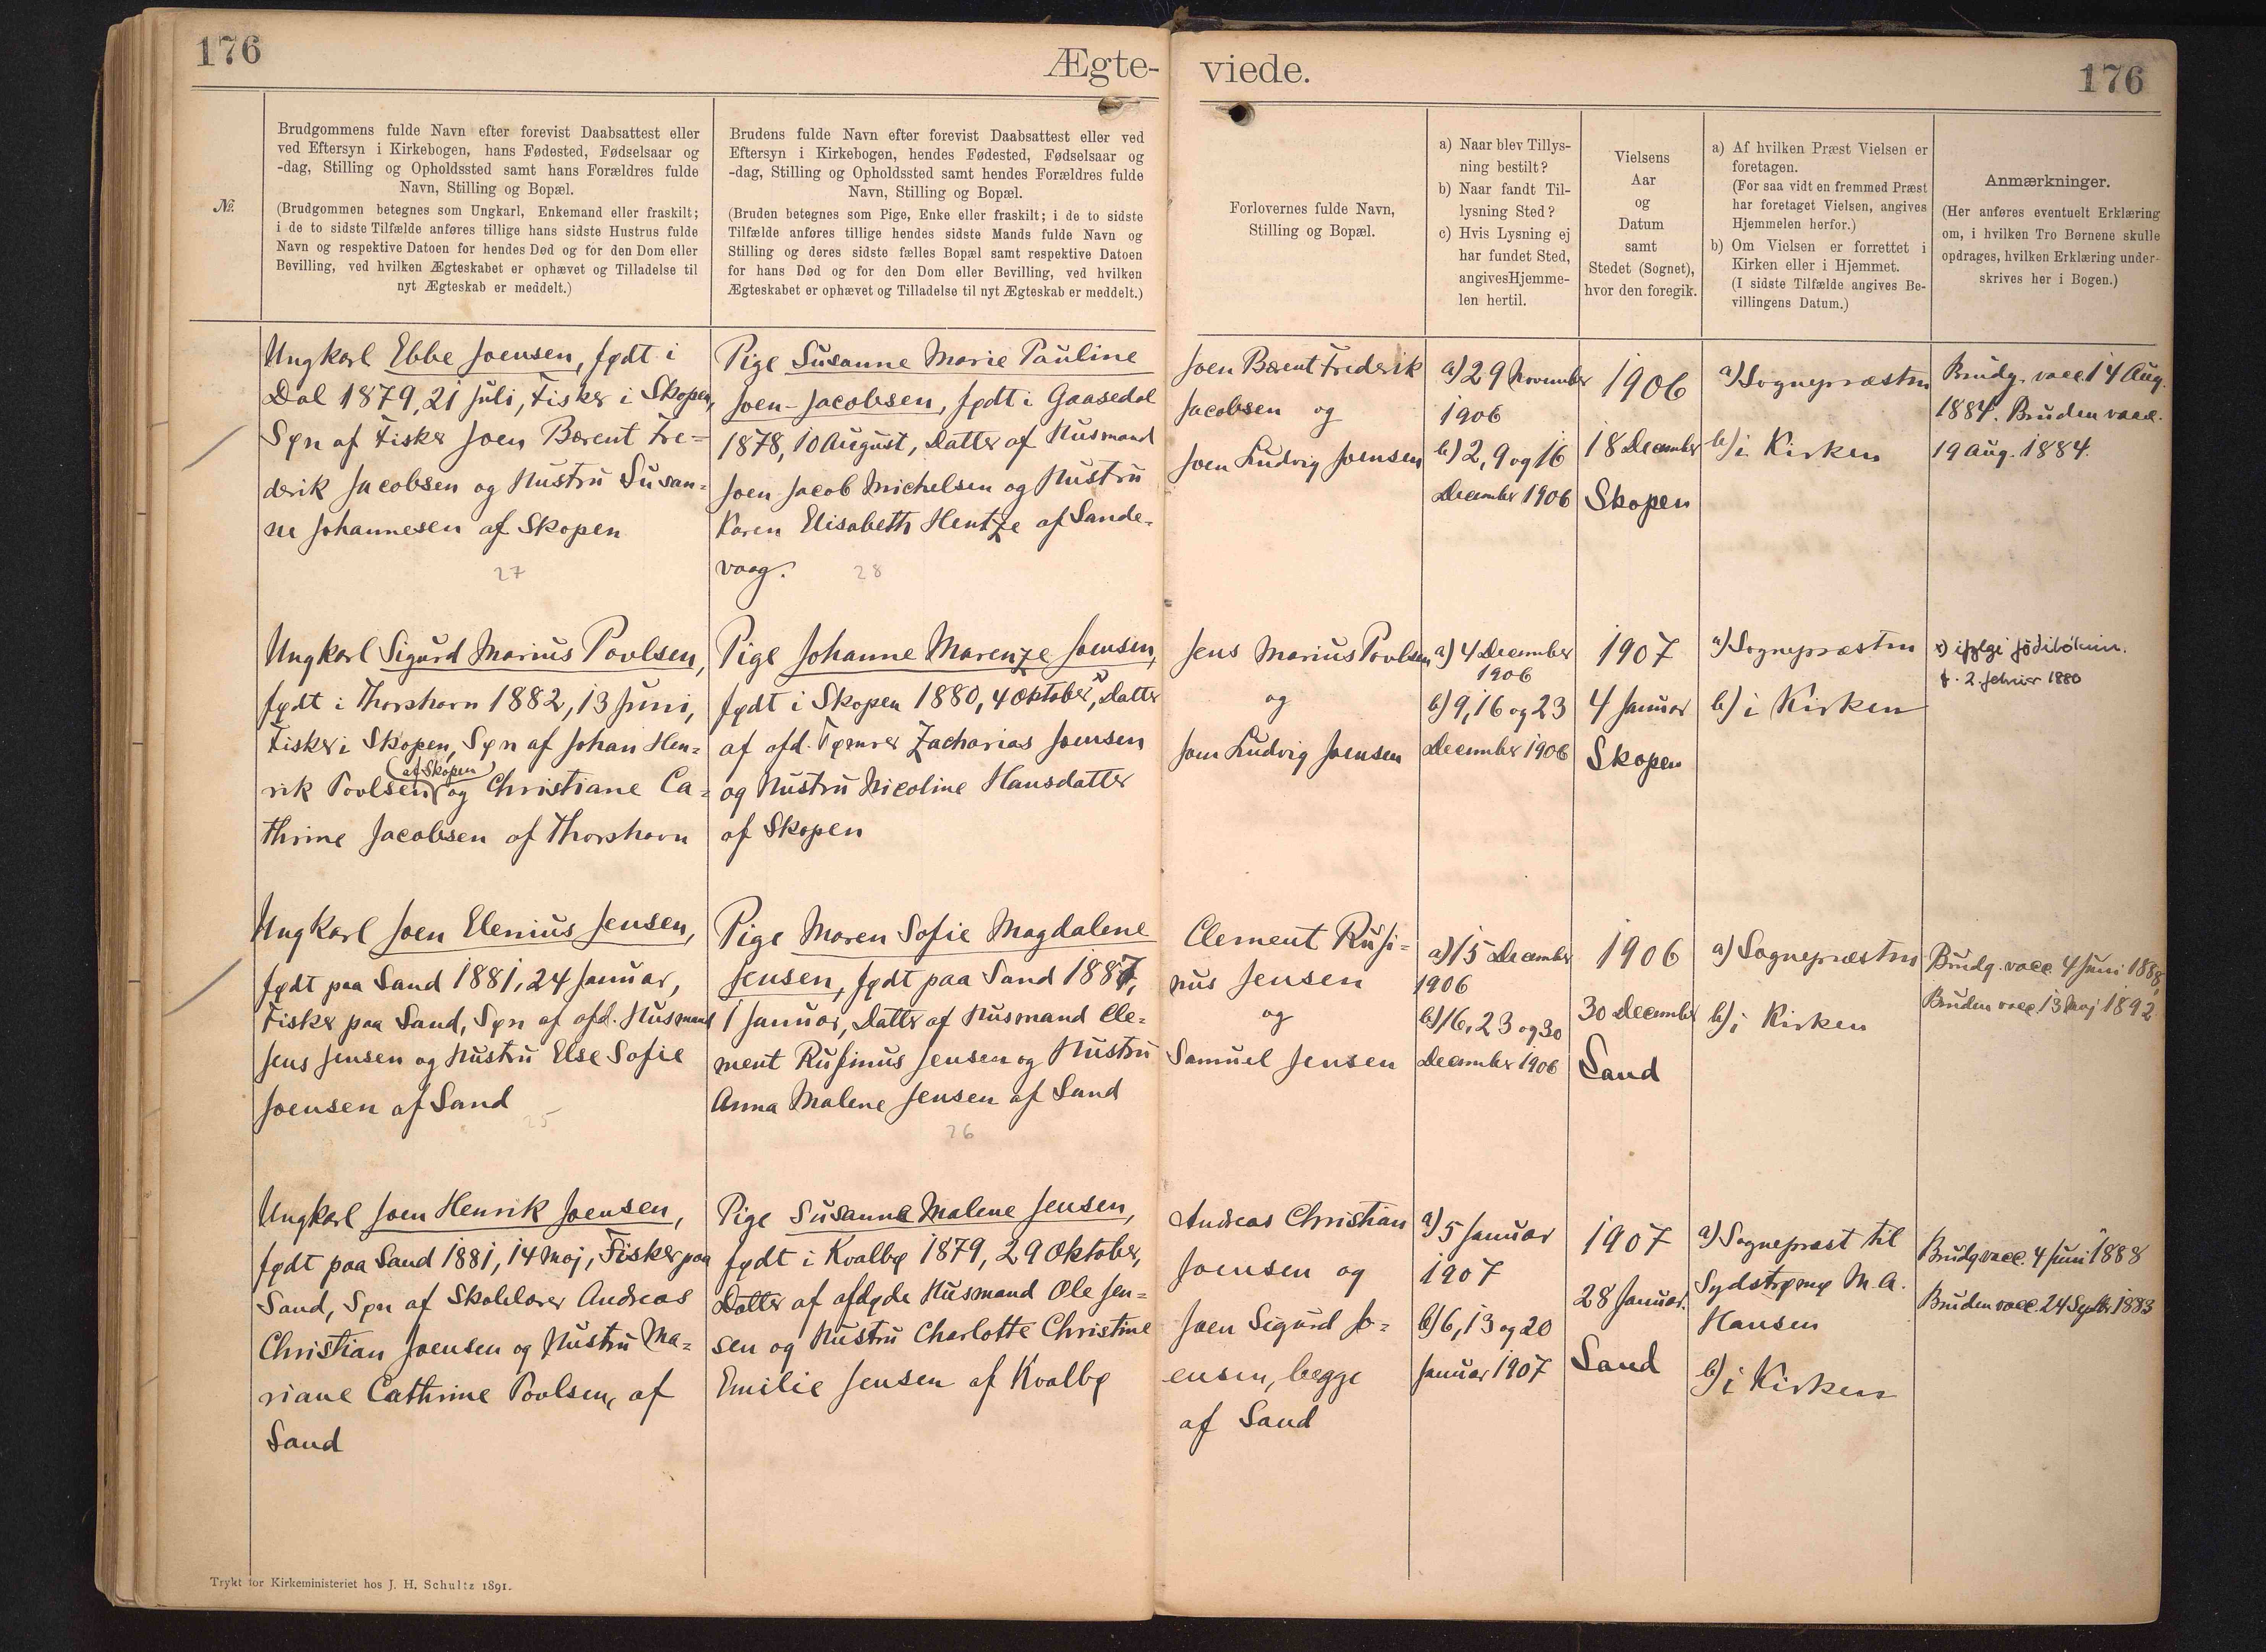 176
Ægte-
viede.
176
№.
Brudgommens fulde Navn efter forevist Daabsattest eller
ved Eftersyn i Kirkebogen, hans Fødested, Fødselsaar og
-dag, Stilling og Opholdssted samt hans Forældres fulde
Navn, Stilling og Bopæl.
(Brudgommen betegnes som Ungkarl, Enkemand eller fraskilt;
i de to sidste Tilfælde anføres tillige hans sidste Hustrus fulde
Navn og respektive Datoen for hendes Død og for den Dom eller
Bevilling, ved hvilken Ægteskabet er ophævet og Tilladelse til
nyt Ægteskab er meddelt.)
Brudens fulde Navn efter forevist Daabsattest eller ved
Eftersyn i Kirkebogen, hendes Fødested, Fødselsaar og
-dag, Stilling og Opholdssted samt hendes Forældres fulde
Navn, Stilling og Bopæl.
(Bruden betegnes som Pige, Enke eller fraskilt; i de to sidste
Tilfælde anføres tillige hendes sidste Mands fulde Navn og
Stilling og deres sidste fælles Bopæl samt respektive Datoen
for hans Død og for den Dom eller Bevilling, ved hvilken
Ægteskabet er ophævet og Tilladelse til nyt Ægteskab er meddelt.)
Forlovernes fulde Navn,
Stilling og Bopæl.
a) Naar blev Tillys-
ning bestilt?
b) Naar fandt Til-
lysning Sted?
c) Hvis Lysning ej
har fundet Sted,
angives Hjemme-
len hertil.
Vielsens
Aar
og
Datum
samt
Stedet (Sognet),
hvor den foregik.
a) Af hvilken Præst Vielsen er
foretagen.
(For saa vidt en fremmed Præst
har foretaget Vielsen, angives
Hjemmelen herfor.)
b) Om Vielsen er forrettet i
Kirken eller i Hjemmet.
(I sidste Tilfælde angives Be-
villingens Datum.)
Anmærkninger.
(Her anføres eventuelt Erklæring
om, i hvilken Tro Børnene skulle
opdrages, hvilken Erklæring under-
skrives her i Bogen.)
Ungkarl Ebbe Joensen, født i
Dal 1879, 21 Juli, Fisker i Skopen,
Søn af Fisker Joen Bærent Fre=
derik Jacobsen og Hustru Susan=
ne Johannesen af Skopen
27
Pige Susanne Marie Pauline
Joen-Jacobsen, født i Gaasedal
1878, 10 August, Datter af Husmand
Joen Jacob Michelsen og Hustru
Karen Elisabeth Hentze af Sande=
vaag.
28
Joen Bærent Frederik
Jacobsen og
Joen Ludvig Joensen
a) 29 November
1906
b) 2, 9 og 16
December 1906
1906
18 December
Skopen
a) Sognepræsten
b) i Kirken
Brudg. vacc. 14 Aug.
1884. Bruden vacc.
19 Aug. 1884.
Ungkarl Sigurd Marius Poulsen,
født i Thorshavn 1882, 13 Juni,
Fisker i Skopen, Søn af Johan Hen=
af Skopen
rik Poulsen og Christiane Ca=
thrine Jacobsen af Thorshavn
Pige Johanne Marenze Joensen,
født i Skopen 1880, 4 Oktober x), Datter
af afd. Tømrer Zacharias Joensen
og Hustru Nicoline Hansdatter
af Skopen
Jens Marius Poulsen
og
Joen Ludvig Joensen
a) 4 December
1906
b) 9, 16 og 23
December 1906
1907
4 Januar
Skopen
a) Sognepræsten
b) i Kirken
x) ifølgi födibókini.
f. 2. februar 1880
Ungkarl Joen Elenius Jensen,
født paa Sand 1881, 24 Januar,
Fisker paa Sand, Søn af afd. Husmand
Jens Jensen og Hustru Else Sofie
Joensen af Sand
25
Pige Maren Sofie Magdalene
Jensen, født paa Sand 1887,
1 Januar, Datter af Husmand Cle=
ment Rufinus Jensen og Hustru
Anna Malene Jensen af Sand
26
Clement Rufi=
nus Jensen
og
Samuel Jensen
a) 15 December
1906
b) 16, 23 og 30
December 1906
1906
30 December
Sand
a) Sognepræsten
b) i Kirken
Brudg. vacc. 4 Juni 1888,
Bruden vacc. 13 Maj 1892
Ungkarl Joen Henrik Joensen,
født paa Sand 1881, 14 Maj, Fisker paa
Sand, Søn af Skolelærer Andreas
Christian Joensen og Hustru Ma=
riane Cathrine Poulsen, af
Sand
Pige Susanne Malene Jensen,
født i Kvalbø 1879, 29 Oktober,
Datter af afdøde Husmand Ole Jen=
sen og Hustru Charlotte Christine
Emilie Jensen af Kvalbø
Andreas Christian
Joensen og
Joen Sigurd Jo=
ensen, begge
af Sand
a) 5 Januar
1907
b) 6, 13 og 20
Januar 1907
1907
28 Januar.
Sand
a) Sognepræst til
Sydstrømø M. A.
Hansen
b) i Kirken
Brudg vacc. 4 Juni 1888
Bruden vacc. 24 Septbr. 1883
Trykt for Kirkeministeriet hos J. H. Schultz 1891.